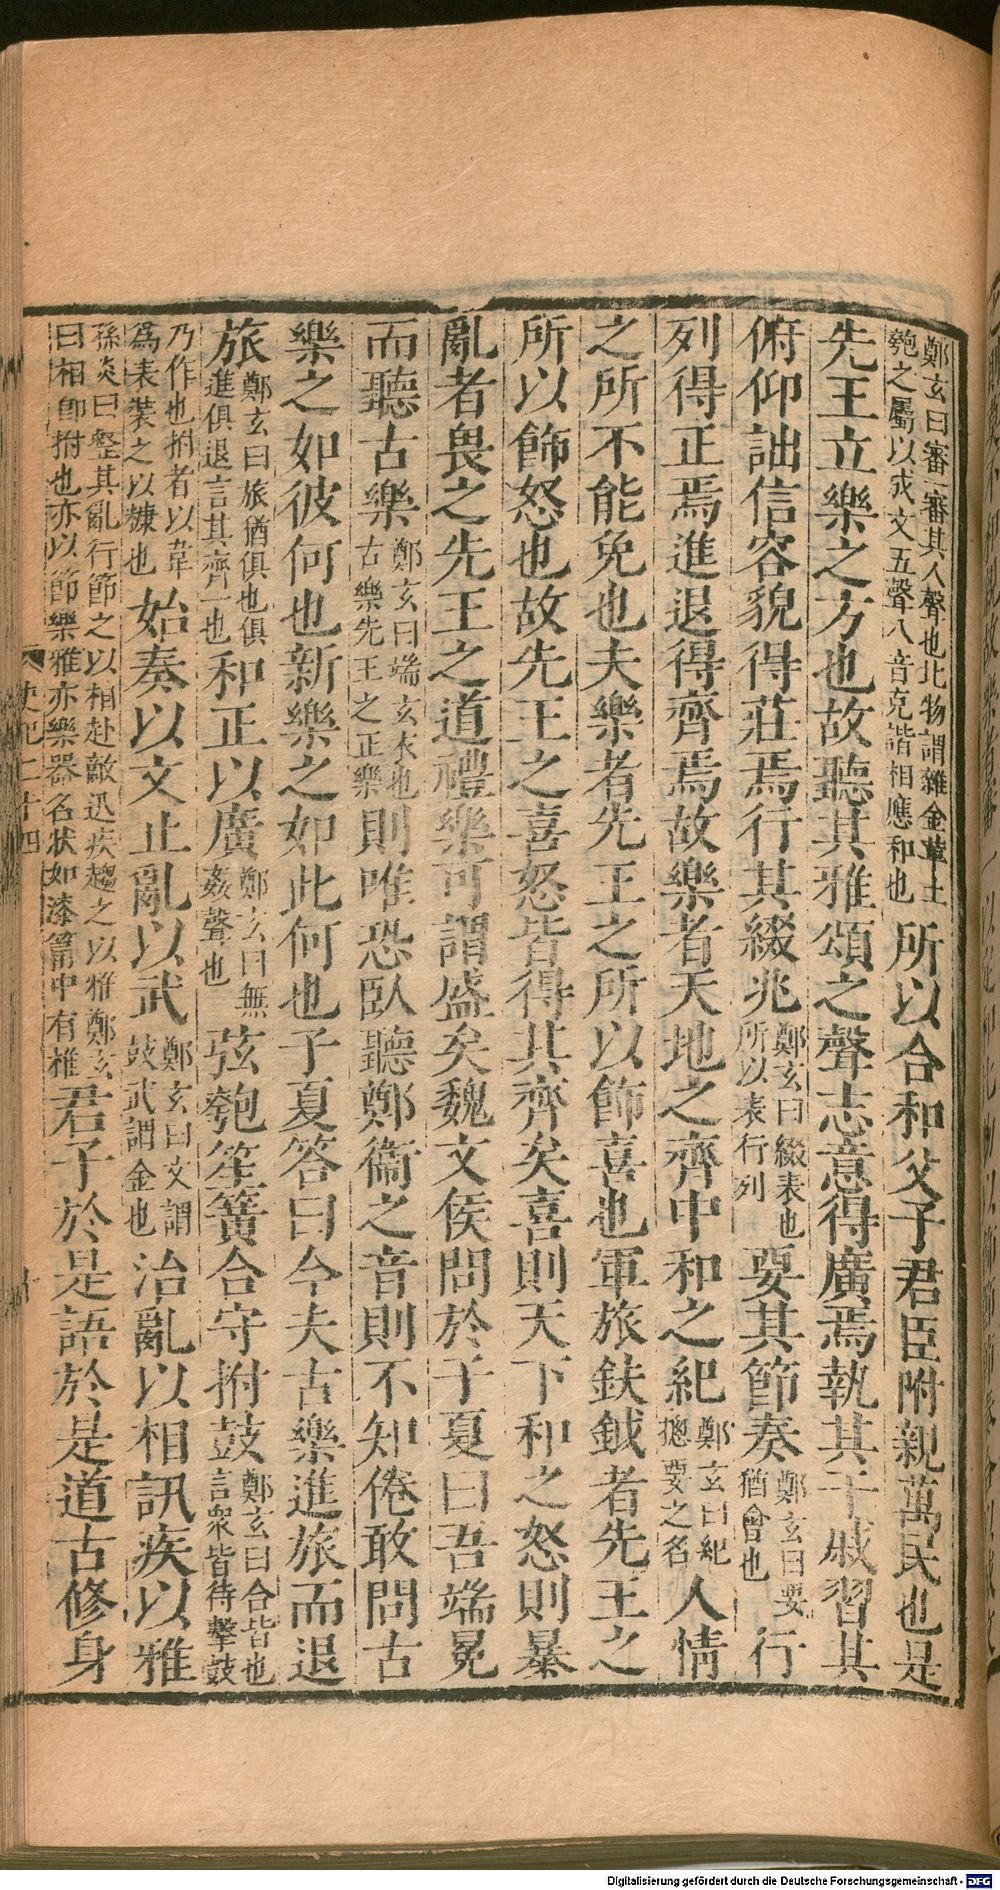 鄭玄曰審一審其人聲也比物謂雜金革土
匏之屬以成文五聲八音克諧相應和也
所以合和父子君臣附親萬民也是
先王立樂之方也故聽其雅頌之聲志意得廣焉執其干戚習其
俯仰詘信容貌得莊焉行其綴兆
鄭玄曰綴表也
所以表行列
要其節奏
鄭玄曰要
猶會也
行
列得正焉進退得齊焉故樂者天地之齊中和之紀
鄭玄曰紀
揔要之名
人情
之所不能免也夫樂者先王之所以飾喜也軍旅鈇鉞者先王之
所以飾怒也故先王之喜怒皆得其齊矣喜則天下和之怒則暴
亂者畏之先王之道禮樂可謂盛矣魏文侯問於子夏曰吾端冕
而聽古樂
鄭玄曰端玄衣也
古樂先王之正樂
則唯恐臥聽鄭衞之音則不知倦敢問古
樂之如彼何也新樂之如此何也子夏答曰今夫古樂進旅而退
旅
鄭玄曰旅猶俱也俱
進俱退言其齊一也
和正以廣
鄭玄曰無
姦聲也
弦匏笙簧合守拊鼓
鄭玄曰合皆也
言衆皆待擊鼓
乃作也拊者以韋
爲表裝之以糠也
始奏以文止亂以武
鄭玄曰文謂
鼓武謂金也
治亂以相訊疾以雅
孫炎曰整其亂行節之以相赴敵迅疾趨之以雅鄭玄
曰相卽拊也亦以節樂雅亦樂器名狀如漆筩中有椎
君子於是語於是道古修身
史記二十四
Digitalisierung gefördert durch die Deutsche Forschungsgemeinschaft - DFG